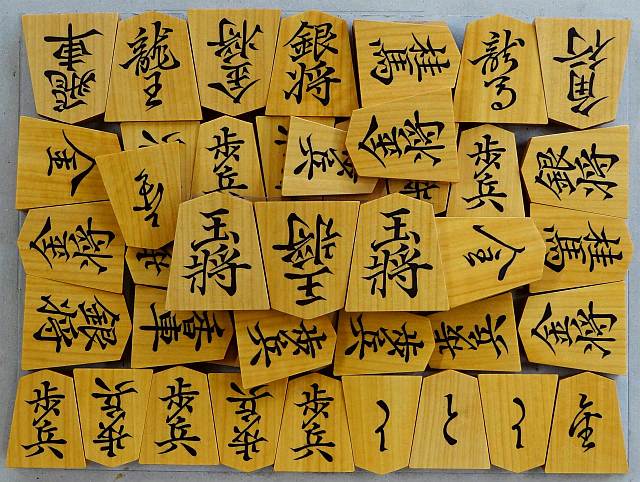 香車
龍王
金将
銀将
桂馬
龍馬
角行
金
歩兵
歩兵
金将
歩兵
銀将
金将
王将
王将
王将
金
桂馬
銀将
香車
歩兵
歩兵
歩兵
金将
歩兵
歩兵
歩兵
歩兵
歩兵
と
と
と